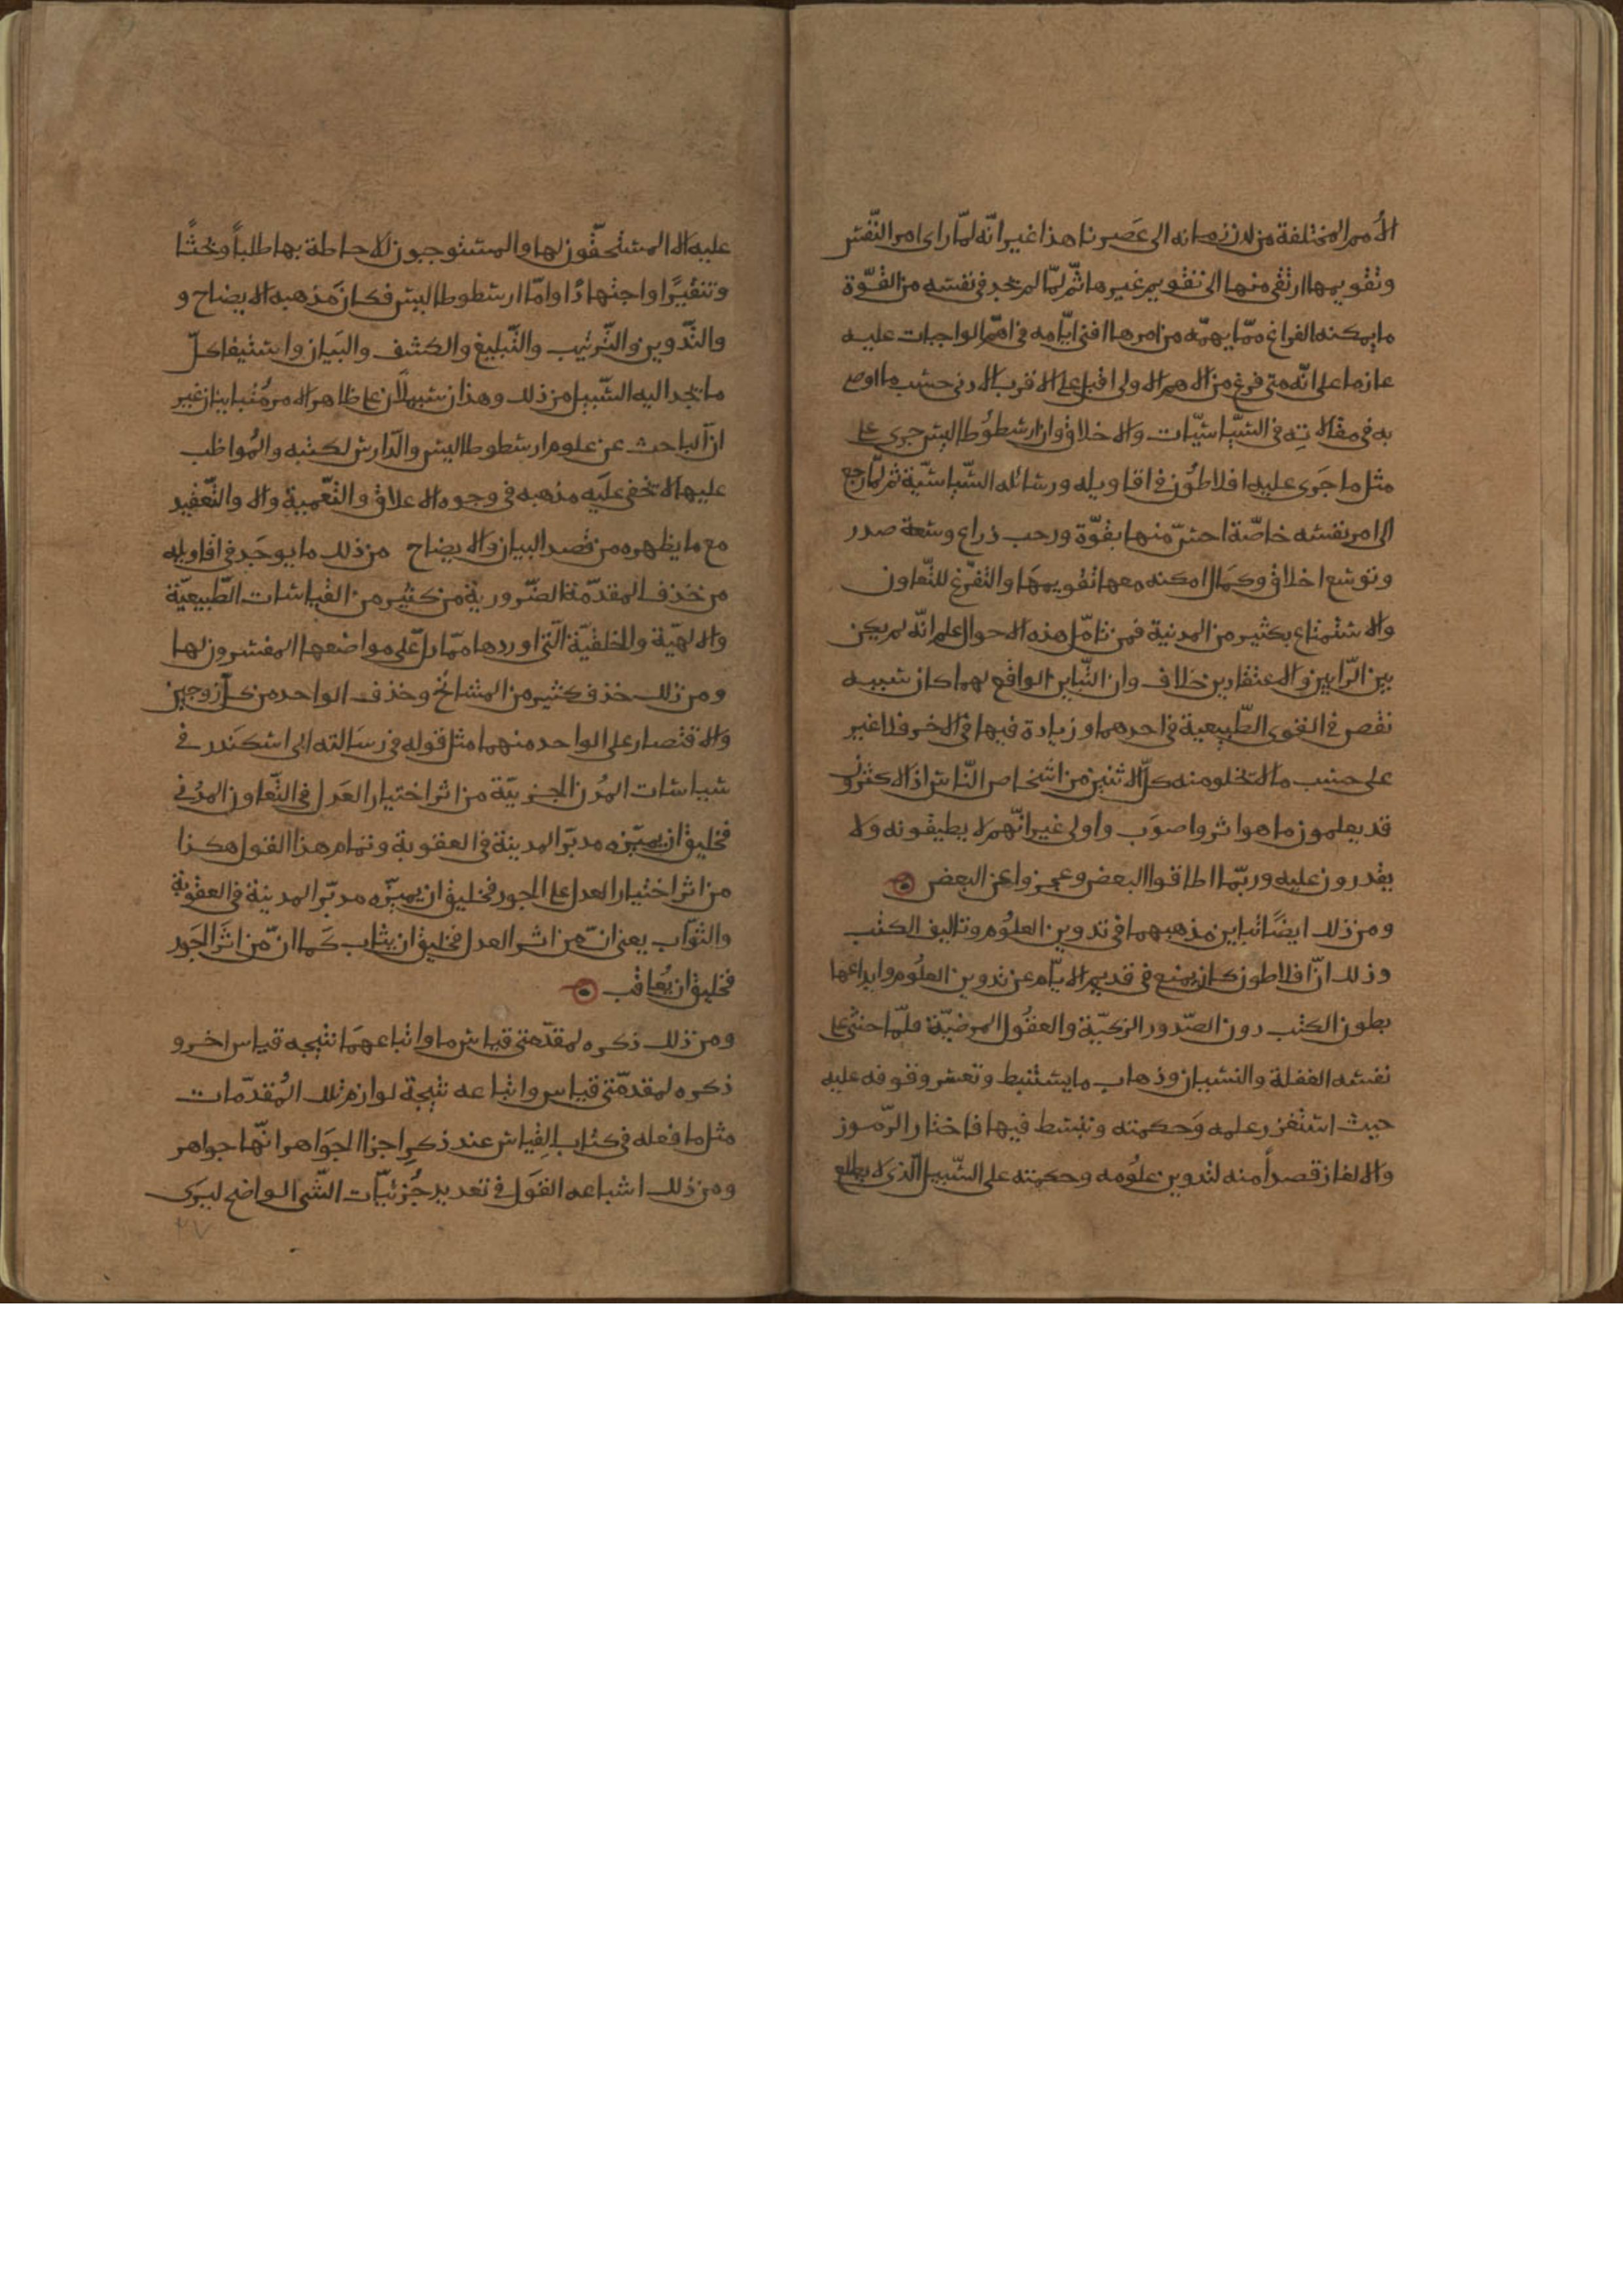 الأمم المختلفة من لدن زمانه الى عَصرنا هذا غير انّه لمّا راى امر النّفس
وتقويمها ارتقى منها الى تقويم غيرها ثّم لمّا لم يجد فى نفسه من القّوة
ما يمكنه الفراغ ممّا يهمّه من امرها افنى ايّامه فى اهمّ الواجبات عليه
عازما على انّه متى فرغ من الاهم الاولى اقبل على الاقرب الادنى حسب ما اوصى
به فى مقالاتِه فى السّياسيّات والاخلاق وان ارسطوُطاليس جرى على
مثل ما جَرى عليه افلاطوُن فى اقاويله ورسائله السّياسيّة ثم لمّا رجع
الى امر نفسه خاصّة احسّ منها بقوّة ورحب ذراع وسعة صدر
وتوسع اخلاق وكمَال امكنه معها تقويمهَا والتفرّغ للتّعاون
والاستمتاع بكثير من المدنية فمن تامّل هذه الاحوال علم انّه لم يكن
بين الرّايين والاعتقادين خلاف وان التّباين الواقع لهما كان سببه
نقص فى القوى الطّبيعية فى احدهما وزيادة فيها فى الاخر فلا غير
على حسب ما لا تخلو منه كلّ اثنين من اشخاص النّاس اذ الاكثرون
قد يعلمون ما هو اثر واصوَب واولى غير انّهم لا يطيقونه ولا
يقدرون عليه وربّما اطاقوا البعض وعجزوا عن البعض
ومن ذلك ايضًا تباين مذهبهما فى تدوين العلوُم وتاليف الكتب
وذلك انّ افلاطون كان يمنع فى قديم الايّام عن تدوين العلُوم وايداعها
بطون الكتب دون الصّدور الزكيّة والعقُول المرضيّة فلمّا خشى على
نفسه الغفلة والنسيان وذهاب ما يستنبط وتعسر وقوفه عليه
حيث استغزر علمه وَحكمته وتبسط فيها فاختار الرّموز
والالغاز قصداً منه لتدوين علوُمه وحكمته على السّبيل الّذى لا يطلع
عليه الا المستحقّون لها والمستوجبون للاحاطة بها طلباً وبحثًا
وتنقيرًا واجتهادًا وامّا ارسطوطاليس فكان مَذهبه الايضاح و
والتّدوين والتّرتيب والتّبليغ والكشف والبَيان واستيفا كلّ
ما يجد اليه السّبيل من ذلك وهذان سبيلان على ظاهر الامر مُتباينان غير
ان الباحث عن علوم ارسطوطاليس والدّارس لكتبه والمُواظب
عليها لا يخفى علَيه مذهبه فى وجوه الاغلاق والتّعمية والا والتّعقيد
مع ما يظهره من قصد البيان والايضاح من ذلك ما يوجَد فى اقاويله
من حَذف المقدّمة الضّرورية من كثير من القياسات الطّبيعيّة
والالهيّة والخلقيّة الّتى اوردها ممّا دلّ على مواضعها المفسرون لها
ومن ذلك حذف كثير من المشائخ وحذف الواحد من كلّ زوجين
والاقتصار على الواحد منهما مثل قوله فى رسَالته الى اسكَندر فى
سياسات المدُن الجزئيّة من اثر اختيار العَدل فى التّعاون المدُنى
فخليق ان يميّزه مدبّر المدينة فى العقوبة وتمام هذا القول هكذا
من اثر اختيار العدل على الجور فخليق ان يميزّه مدبّر المدينة فى العقوُبة
والثّوَاب يعنى انّ من اثر العدل فخليق ان يثاب كَما انّ من اثَر الجَور
فخليق ان يُعاقب
ومن ذلك ذكره لمقدّمتى قياس ما واتباعهمَا نتيجه قياس اخر و
ذكره لمقدمّتى قياس واتباعه نتيجة لوازم تلك المُقدّمات
مثل ما فعله فى كتاب القِياس عند ذكرِ اجزا الجوَاهر انّها جواهر
ومن ذلك اشباعه القوَل فى تعديد جُزئيّات الشّى الواضح ليرَى
٢٧